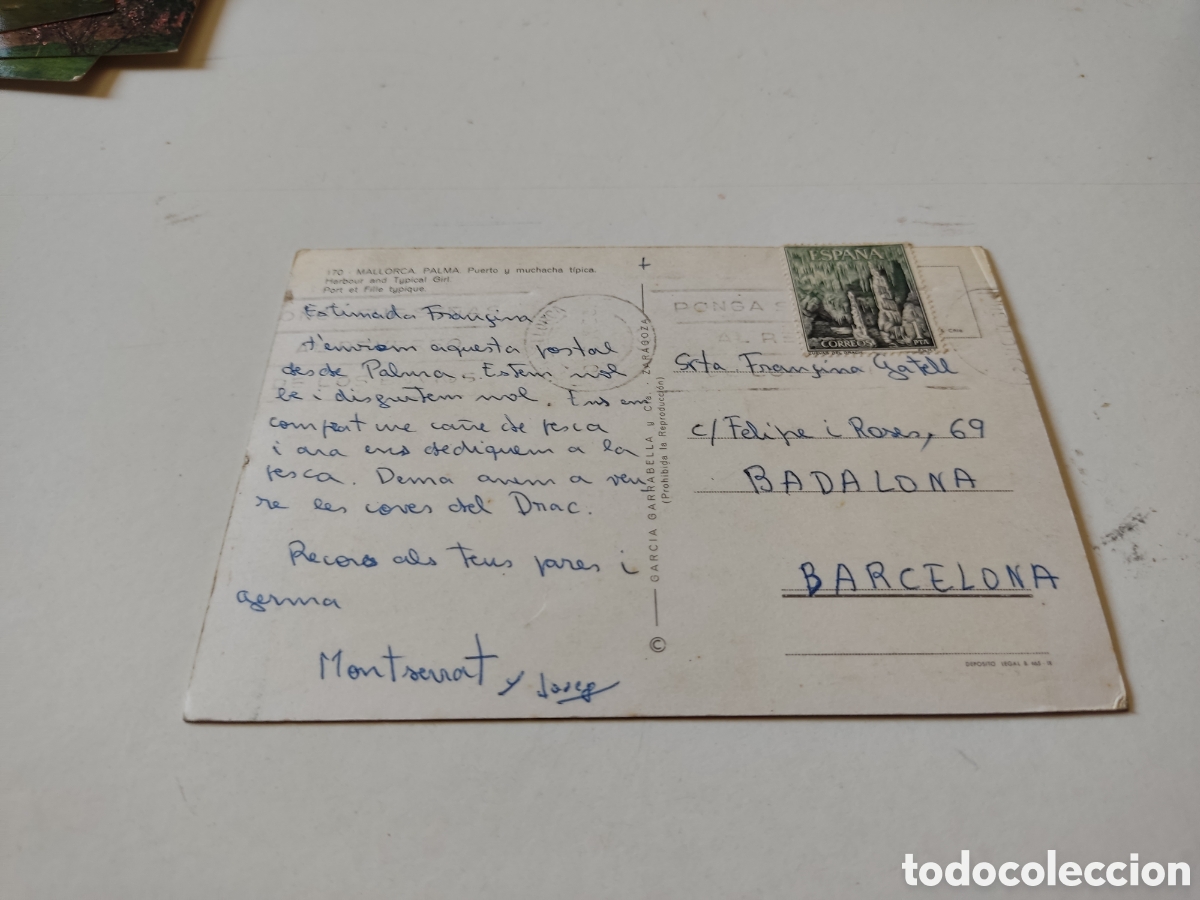 170 - MALLORCA. PALMA. Puerto y muchacha típica.
Harbour and Typical Girl.
Port et Fille typique.
Estimada Franzina
t'enviem aquesta postal
desde Palma. Estem mol
be i disfrutem mol. Ens em
comprat une cañe de pesca
i ara ens dediquem a la
pesca. Dema anem a veu-
re les coves del Drac.
Records als teus pares i
germa
Montserrat y Josep
© GARCIA GARRABELLA y Cía. - ZARAGOZA
(Prohibida la Reproducción)
PONGA S
AL RE
ESPAÑA
CORREOS
PTA
Srta Franzina Gatell
c/ Felipe i Roses, 69
BADALONA
BARCELONA
DEPOSITO LEGAL
todocoleccion